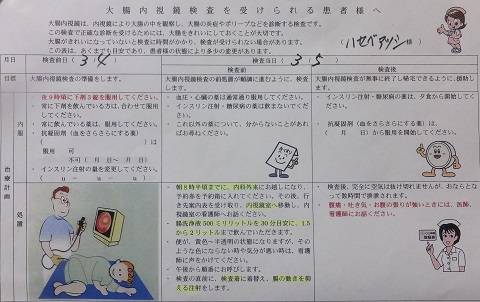 大腸内視鏡検査を受けられる患者様へ
大腸内視鏡は、内視鏡により大腸の中を観察し、大腸の炎症やポリープなどを診断する検査です。
この検査で正確な診断を受けるためには、大腸をきれいにしておくことが大切です。
大腸がきれいになっていないと検査に時間がかかり、検査が受けられない場合があります。
この表はおおよその予定です。患者様の状態により多少の変更があります。
(ハセベアツシ 様)
検査前日( 3/4 )
検査当日( 3/5 )
検査前
検査後
目標
大腸内視鏡検査の準備をします。
大腸内視鏡検査の前処置が順調に進むように、援助します。
大腸内視鏡検査が無事に終了し帰宅できるように、援助します。
治療計画
内服
・夜9時頃に下剤3錠を服用してください。
・常に下剤を飲んでいる方は、合わせて服用してください。
・常に飲んでいる薬は、服用してください。
・抗凝固剤(血をさらさらにする薬)
( )は
服用 可
不可( 月 日〜 月 日)
・インスリン注射の量を変更してください。
( u - u - u )
・血圧・心臓の薬は通常通り服用してください。
・インスリン注射・糖尿病の薬は飲まないでください。
・これ以外の薬について、分からないことがあればお尋ねください。
・インスリン注射・糖尿病の薬は、夕食から開始してください。
・抗凝固剤(血をさらさらにする薬)は、
( 月 日)から服用を開始してください。
処置
・朝8時半頃までに、内科外来にお越しになり、予約券を予約箱に入れてください。その後、行き先案内表を受け取り、内視鏡室へ移動し、内視鏡室の看護師へお話ください。
・腸洗浄液500ミリリットルを30分目安に、1.5から2リットルまで飲んでいただきます。
・便が、黄色〜半透明の状態になりますが、そのような色にならない時や気分が悪い時は、看護師に声をかけてください。
・午後から順番にお呼びします。
・検査の直前に、検査着に着替え、腸の動きを抑える注射をします。
・検査後、完全に空気は抜け切れませんが、おならとなって数時間で排泄されます。
・腹痛・吐き気・お腹の張りが強いときには、医師、看護師にお話ください。